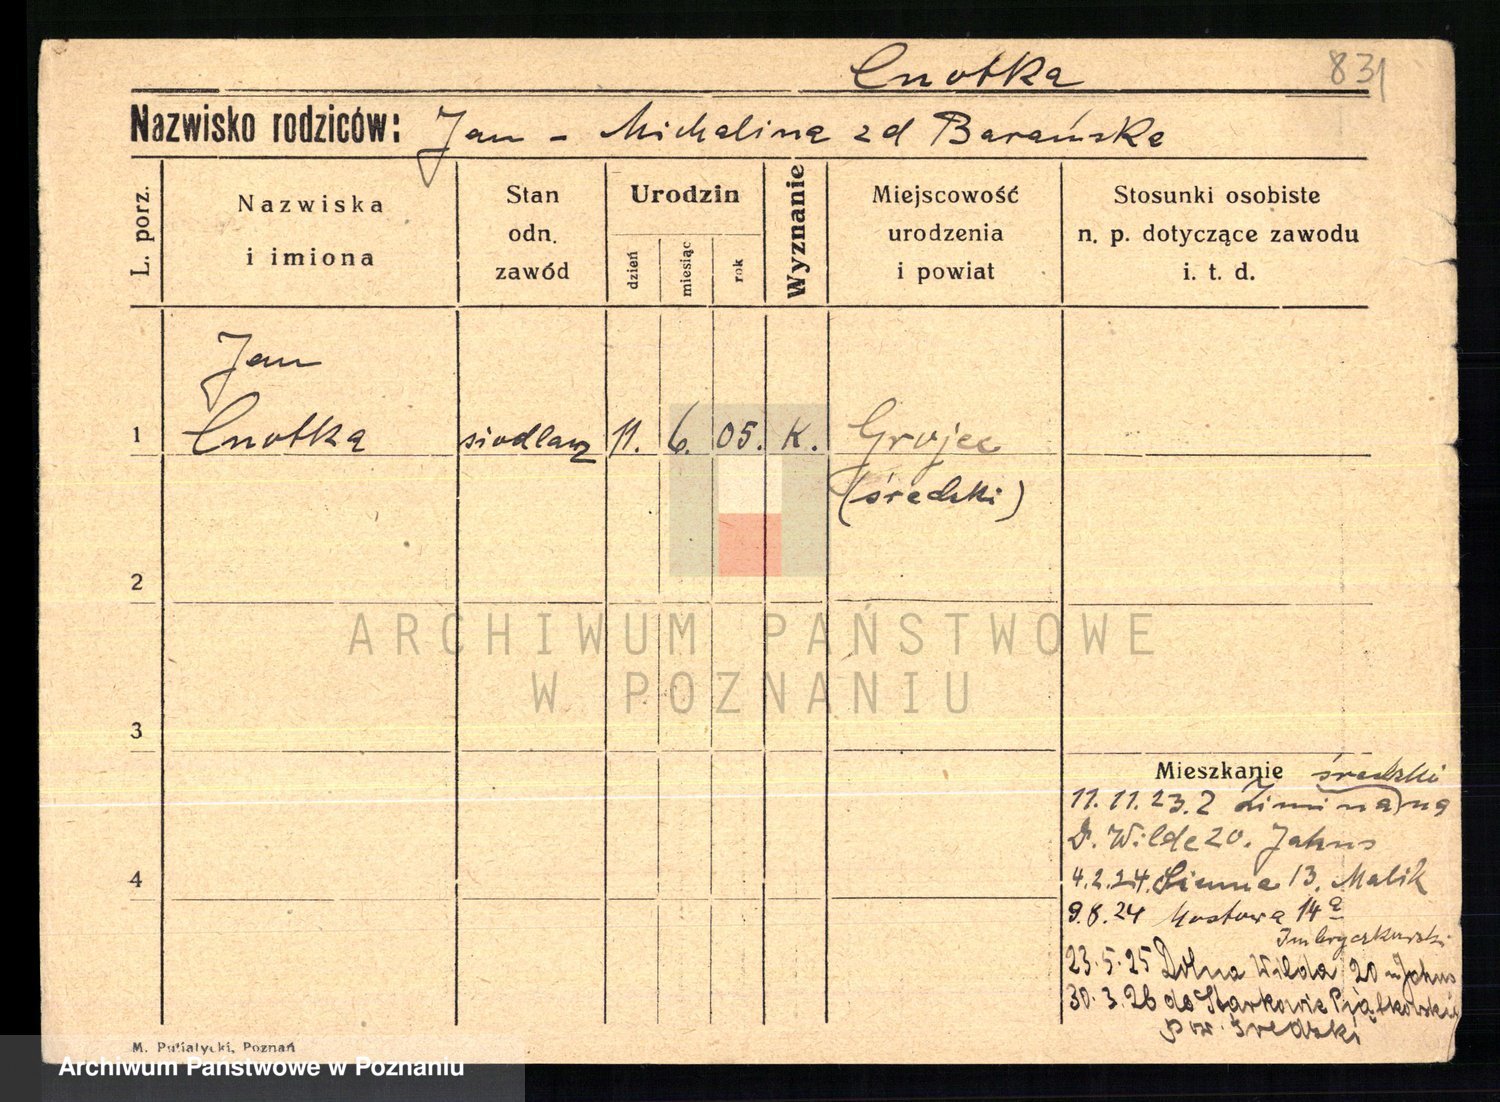 Cnotka 831
Nazwisko rodziców: Jan – Michalina zd Barańska
L. porz.
Nazwiska
i imiona
Stan
odn.
zawód
Urodzin
dzień
miesiąc
rok
Wyznanie
Miejscowość
urodzenia
i powiat
Stosunki osobiste
n. p. dotyczące zawodu
i. t. d.
Jan
1 Cnotka siodlarz 11. 6. 05. K. Grojec
(średzki)
2
ARCHIWUM PAŃSTWOWE
W POZNANIU
3
Mieszkanie średzki
11.11.23. Z Zimina) na
D. Wilde 20. Jahns
4
4.2.24. Sienna 13. Malik
9.8.24 Mostowa 14a
23.5.25 Dolna Wilda 20 Jahns
30.3.26 do Starkowie Piątkowskie
pow. średzki
M. Putiatycki, Poznań
Archiwum Państwowe w Poznaniu